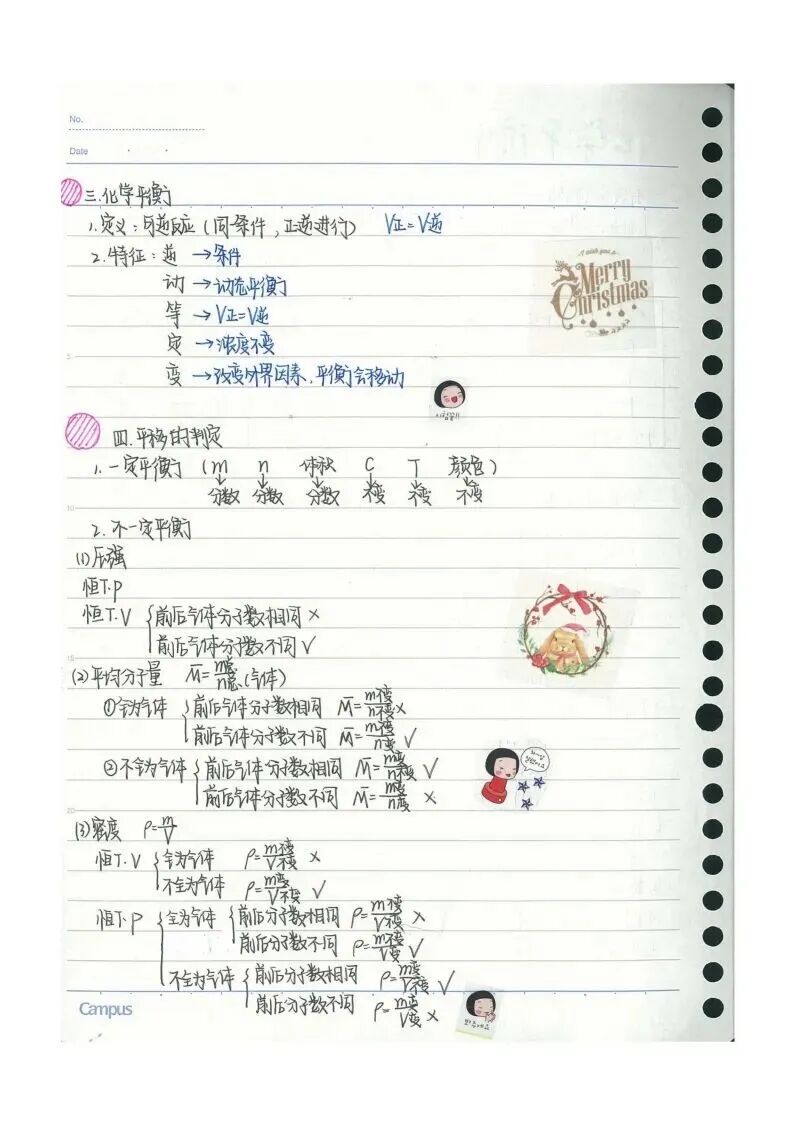 No.
Date
三.化学平衡
1.定义:可逆反应(同条件,正逆进行) V正=V逆
2.特征:逆→条件
动→动态平衡
等→V正=V逆
定→浓度不变
变→改变外界因素,平衡会移动
I wish you a
Merry
Christmas
四.平移的判定
1.一定平衡(m n 体积 C T 颜色)
分数 分数 分数 不变 不变 不变
2.不一定平衡
(1)压强
恒T.P
恒T.V {前后气体分子数相同 ×
前后气体分子数不同 √
(2)平均分子量 M̄=m总/n总(气体)
①全为气体 {前后气体分子数相同 M̄=m不变/n不变 ×
前后气体分子数不同 M̄=m不变/n变 √
②不全为气体 {前后气体分子数相同 M̄=m变/n不变 √
前后气体分子数不同 M̄=m变/n变 ×
(3)密度 ρ=m/V
恒T.V {全为气体 ρ=m不变/V不变 ×
不全为气体 ρ=m变/V不变 √
恒T.P {全为气体 {前后分子数相同 ρ=m不变/V不变 ×
前后分子数不同 ρ=m不变/V变 √
不全为气体 {前后分子数相同 ρ=m变/V不变 √
前后分子数不同 ρ=m变/V变 ×
Campus